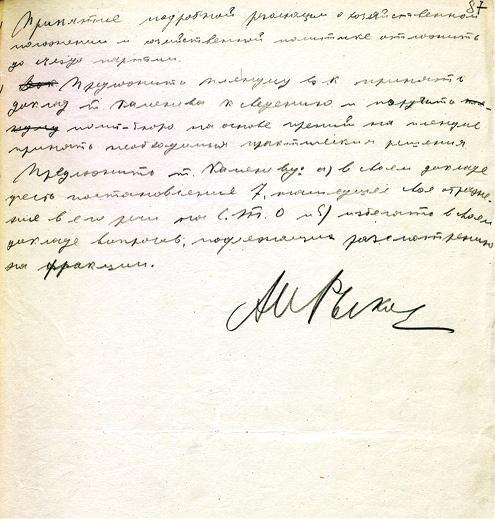 87
Принятие подробной резолюции о хозяйственном
положении и хозяйственной политике отложить
до съезда партии.
Предложить пленуму ЦК принять
доклад т. Каменева к сведению и поручить
полит-бюро на основе прений на пленуме
принять необходимые практические решения
Предложить т. Каменеву: а) в своем докладе
учесть постановление 7, нашедшее свое отраже-
ние в его речи на С.Т.О и б) избегать в своем
докладе вопросов, подлежащих рассмотрению
на фракции.
АИРыков